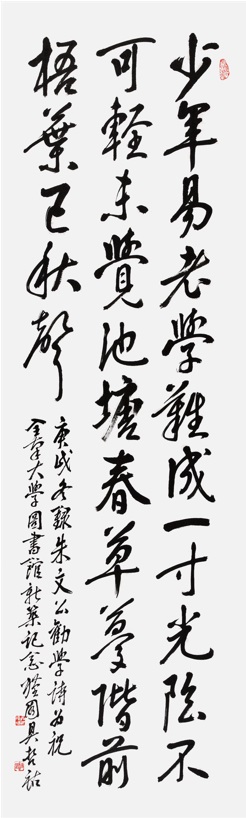 少年易老學難成一寸光陰不
可輕未覺池塘春草夢階前
梧葉已秋聲
庚戌冬錄朱文公勸學詩為祝
大學圖書館新築記念